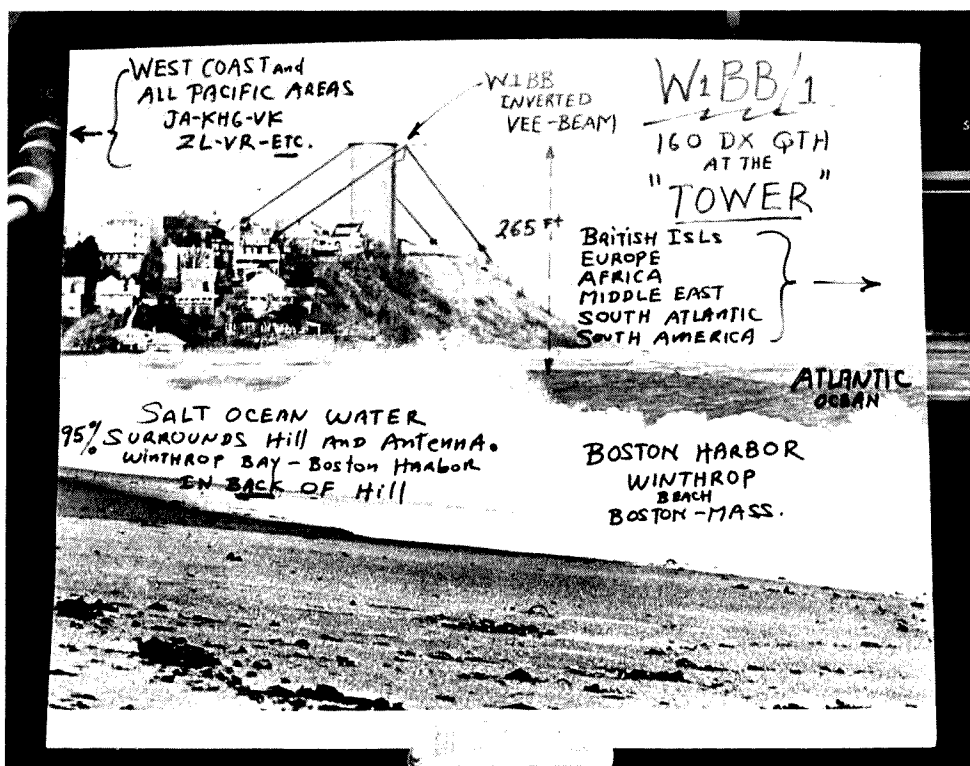 WEST COAST and
ALL PACIFIC AREAS
JA-KH6-VK
ZL-VR-ETC.
W1BB
INVERTED
VEE-BEAM
265 Ft
W1BB/1
160 DX QTH
AT THE
"TOWER"
BRITISH ISLs
EUROPE
AFRICA
MIDDLE EAST
SOUTH ATLANTIC
SOUTH AMERICA
ATLANTIC
OCEAN
SALT OCEAN WATER
95% SURROUNDS Hill AND ANTENNA.
WINTHROP BAY - BOSTON HARBOR
IN BACK OF Hill
BOSTON HARBOR
WINTHROP
BEACH
BOSTON-MASS.